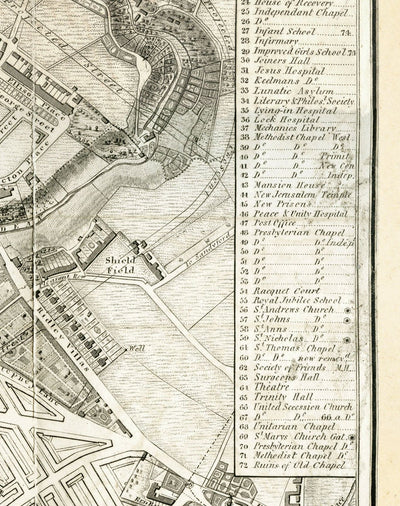 24 House of Recovery
25 Independant Chapel
26 Do.
27 Infant School 74
28 Infirmary
29 Improved Girls School 73
30 Joiners Hall
31 Jesus Hospital
32 Keelmans Do.
33 Lunatic Asylum
34 Literary & Philos. Society
35 Lying-in Hospital
36 Lock Hospital
37 Mechanics Library
38 Methodist Chapel Wesl.
39 Do. Do. Do.
40 Do. Do. Trinity
41 Do. Do. New Con
42 Do. Do. Indep.
43 Mansion House
44 New Jerusalem Temple
45 New Prison
46 Peace & Unity Hospital
47 Post Office
48 Presbyterian Chapel
49 Do. Do. Indep.
50 Do. Do.
51 Do. Do.
52 Do. Do.
53 Do. Do.
54 Racquet Court
55 Royal Jubilee School
56 St. Andrews Church
57 St. Johns Do.
58 St. Anns Do.
59 St. Nicholas Do.
61 St. Thomas Chapel
60 Do. Do. now remov.
62 Society of Friends M.H.
63 Surgeons Hall
64 Theatre
65 Trinity Hall
66 United Secession Church
67 Do. Do. 66 a Do.
68 Unitarian Chapel
69 St. Marys Church Gat.
70 Presbyterian Chapel Do.
71 Methodist Chapel Do.
72 Ruins of Old Chapel
Shield
Field
Pleasant Row
Ridley Villas
Well
To Sandyford
George Street